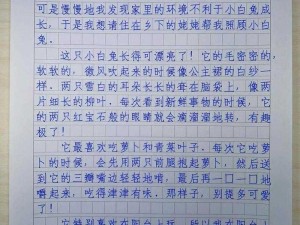 可是慢慢地我发现家里的环境不利于小白兔
成长，于是我想请住在乡下的姥姥帮我照顾小白
兔。
这只小白兔长得可漂亮了！它的毛密密的，
软软的，微风吹起来的时候像公主裙的白纱一
样。两只雪白的耳朵长长的耷在脑袋上，像两
片细长的柳叶，每次看到新鲜事物的时候，它
的两只红宝石般的眼睛就会滴溜溜地转，有趣
极了！
它最喜欢吃萝卜和青菜叶子。每次它吃萝
卜的时候，会先用两个前腿抱起萝卜，然后送
到它的三瓣嘴边轻轻地啃，最后再一口一口地
嚼起来，吃得津津有味。那样子，别提多可爱
了！
它特别喜欢在阳台上玩，所以我在阳台